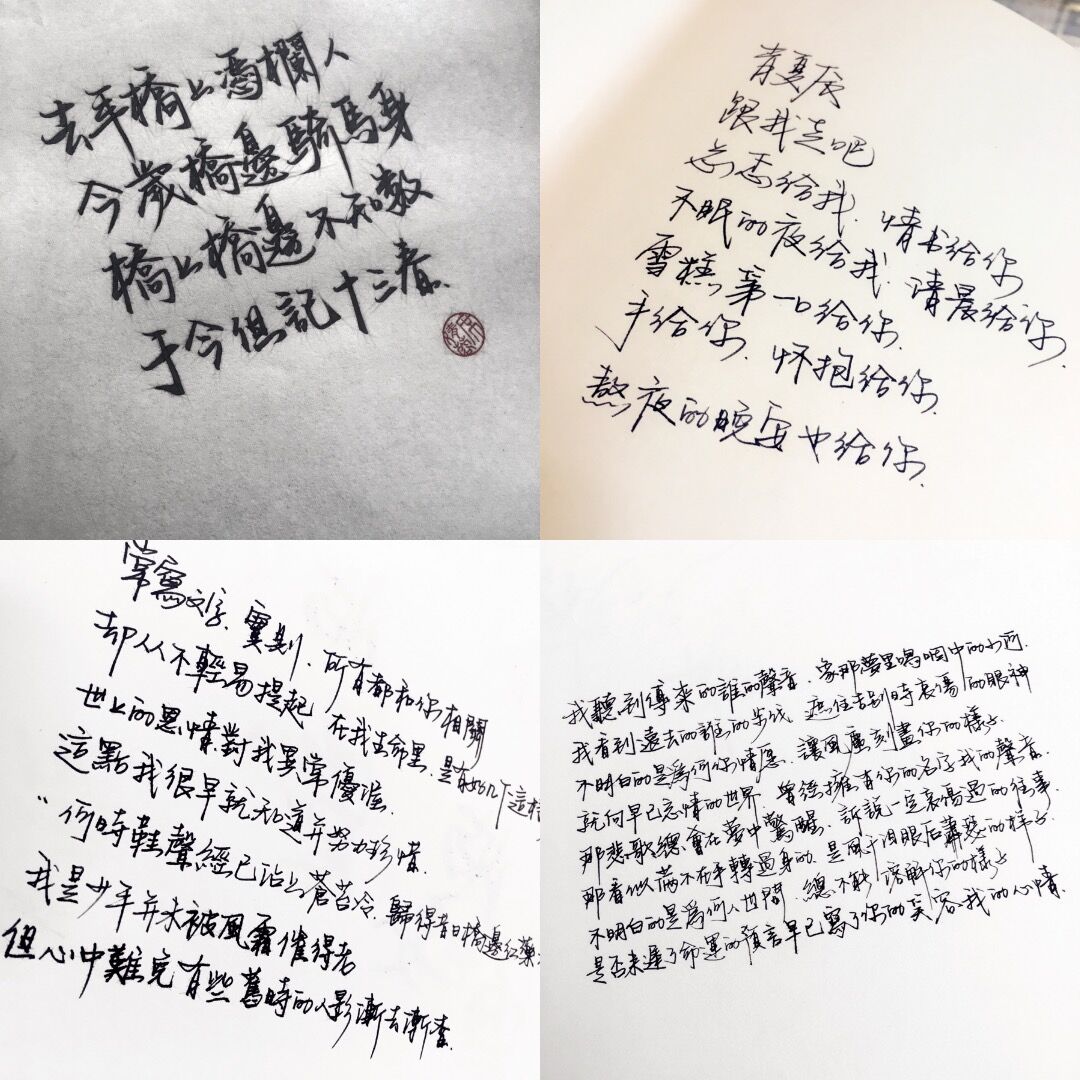 去年橋上憑欄人
今歲橋邊騎馬身
橋上橋邊不知數
于今俱記十三春
青夏辰
跟我走吧
忐忑给我．情书给你
不眠的夜给我．清晨给你
雪糕第一口给你
手给你．怀抱给你
熬夜的晚安也给你
常寫文字．實則．所有都和你相關
却从不輕易提起 在我生命里．是有如下這
世上的恩情．對我異常優渥
這點我很早就知道并努力珍惜
“何時鞋聲經已沾上蒼苔冷．歸得昔日橋邊紅藥
我是少年并未被風霜催得老
但心中難免有些舊時的人影漸去漸
我聽到傳來的誰的聲音．象那夢里嗚咽中的小河
我看到遠去的誰的步伐 遮住告別時哀傷的眼神
不明白的是為何你情愿 讓風塵刻畫你的樣子
就向早已忘情的世界．曾經擁有你的名字我的聲音
那悲歌總會在夢中驚醒．訴說一定哀傷過的往事
那看似滿不在乎轉過身的．是風干淚眼后蕭瑟的樣子
不明白的是為何人世間 總不能溶解你的樣子
是否来遲了命運的預言早已寫了你的笑容我的心情